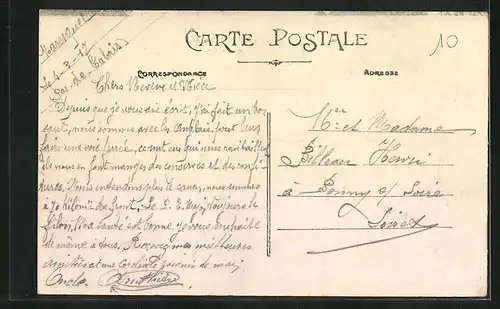 Le 4-3-17
Pas-de-Calais
CARTE POSTALE
10
CORRESPONDANCE
ADRESSE
Chers Neveu et Nièce
Depuis que je vous ai écrit, j'ai fait un
saut, nous sommes avec les Anglais, pour leur
faire une voie ferrée, ce sont eux qui nous
ils nous en font manger des conserves et des confi-
tures. Nous entendons plus le canon, nous sommes
à 70 kilom. du front. Le toujours le
filon, Ma santé est bonne je vous souhaite
de même à tous. Recevez mes meilleures
amitiés et une cordiale poignée de main
Oncle
Mr et Madame
Henri
à Bonny s/ Loire
Loiret